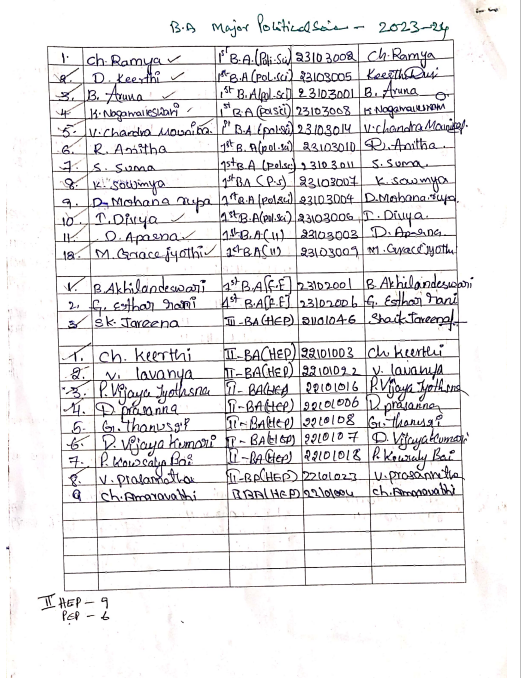 B.A Major Political Sci - 2023-24
1. Ch. Ramya 1st B.A.(Poli.Sci) 23103002 Ch. Ramya
2. D. Keerthi 1st B.A (pol.sci) 23103005
3. B. Aruna 1st B.A(pol.sci) 23103001 B. Aruna
4. K. Nagamalleswari 1st B.A 23103008 K. Nagamalleswari
5. V. Chandra Mounika 1st B.A (pol.sci) 23103014
6. R. Anitha 1st B.A(pol.sci) 23103010 R. Anitha.
7. S. Suma 1st B.A (pol.sci) 23103011 S. Suma.
8. K. Sowmya 1st BA (P.s) 23103007 K. Sowmya
9. D. Mohana rupa 1st B.A(pol.sci) 23103004 D. Mohana rupa.
10. T. Divya 1st B.A(pol.sci) 23103006 T. Divya.
11. D. Aparna 1st B.A(11) 23103003 D. Aparna
12. M. Grace jyothi 1st BA(11) 23103009 M. Grace jyothi
1. B. Akhilandeswari 1st B.A(F.E) 23102001 B. Akhilandeswari
2. G. Esthar rani 1st B.A(F.E) 23102006 G. Esthar rani
3 Sk. Jareena III-BA(HEP) 21101046
1. Ch. Keerthi II-BA(HEP) 22101003 Ch. Keerthi
2. V. lavanya II-BA(HEP) 22101022 V. lavanya
3. P. Vijaya Jyothsna II-BA(HEP) 22101016 P. Vijaya Jyothsna
4. D. prasanna II-BA(HEP) 22101006 D. prasanna
5. G. Thanusri II-BA(HEP) 2210108 G. Thanusri
6. D. Vijaya Kumari II-BA(HEP) 2210107 D. Vijaya Kumari
7. P. Kowsalya Bai II-BA(HEP) 22101018 P. Kowsaly Bai
8. V. prasannatha II-BA(HEP) 22101023 V. prasannitha
9 Ch. Amaravathi BA(HEP) 22101004 Ch. Amaravathi
II HEP - 9
PEP - 6